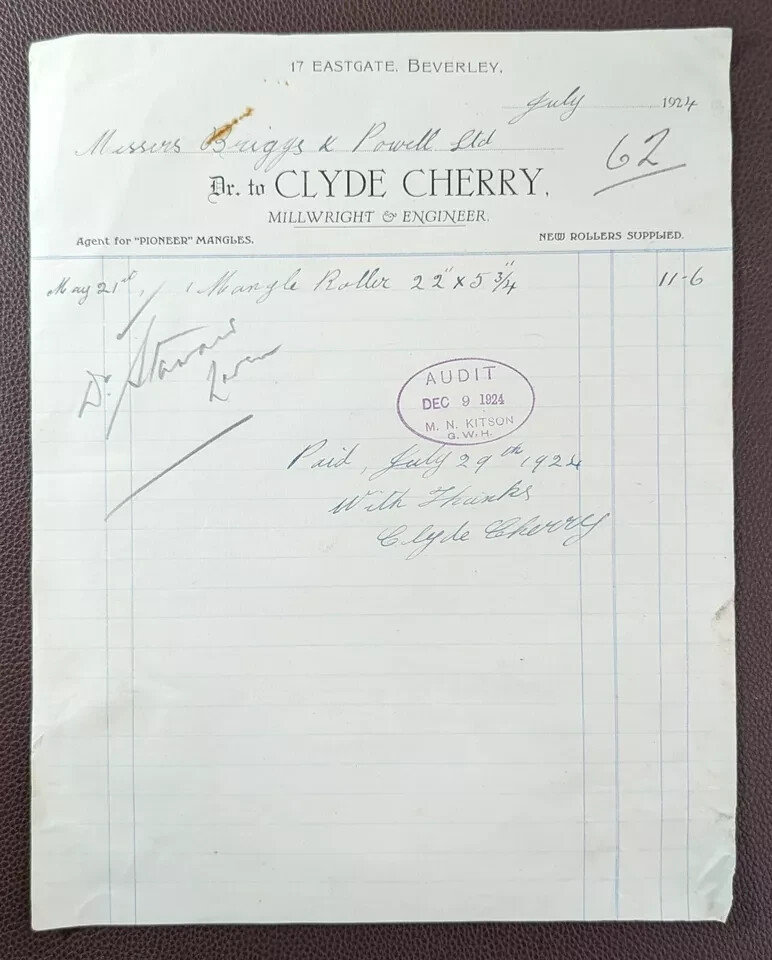 17 EASTGATE. BEVERLEY,
July 1924
Messers Briggs & Powell Ltd
62
Dr. to CLYDE CHERRY,
MILLWRIGHT & ENGINEER.
Agent for "PIONEER" MANGLES. NEW ROLLERS SUPPLIED.
May 21st, 1 Mangle Roller 22" x 5 3/4" 11-6
Dr.
AUDIT
DEC 9 1924
M. N. KITSON
G.W.H.
Paid, July 29th 1924
With Thanks
Clyde Cherry